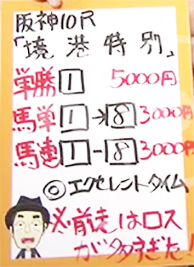 阪神10R
「境港特別」
単勝 1 5000円
馬単 1→8 3000円
馬連 1-8 3000円
◎エクセレントタイム
前走はロス
が多すぎた!